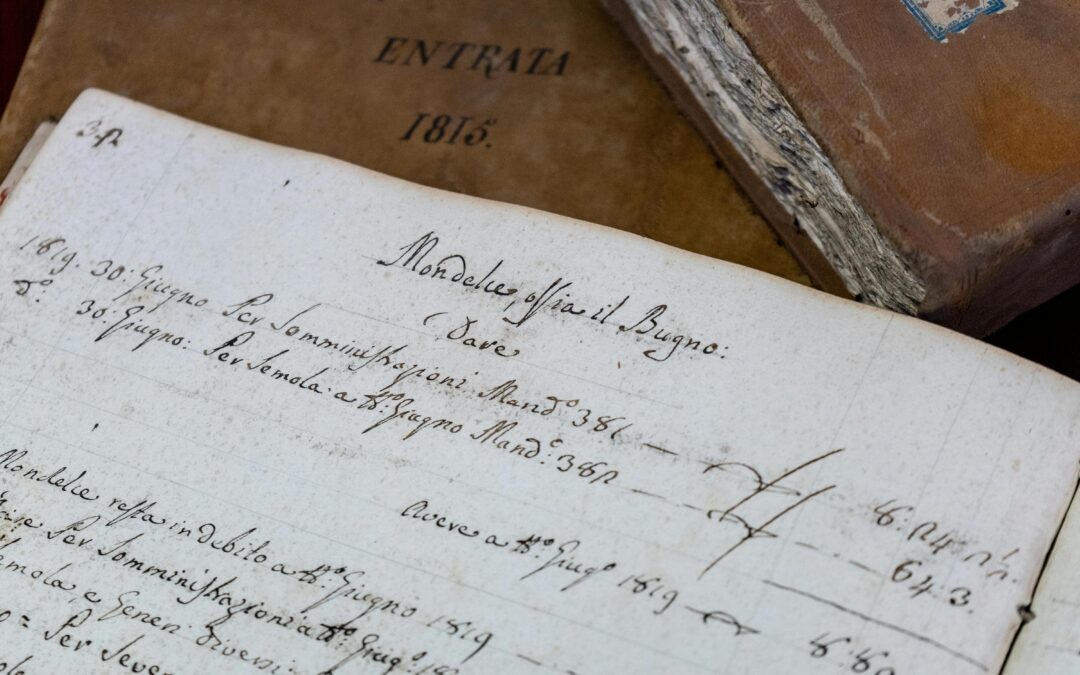 ENTRATA
1815.
Mondelce, ossia il Bugno:
Dare
1819. 30: Giugno Per Somministrazioni Mand:º 381
dº: 30: Giugno: Per Semola a Giugno Mand:º 382
64 3.
Avere a Giugº 1819
Mondelce resta in debito a Giugno 1819
Dare Per Somministrazioni a Giugº:
Semola e Generi diversi
= Per Seve